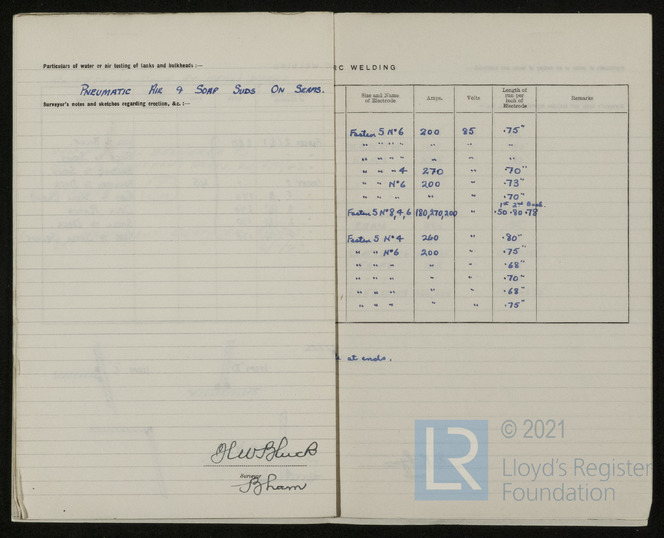 Particulars of water or air testing of tanks and bulkheads :—
PNEUMATIC AIR & SOAP SUDS ON SEAMS.
Surveyor's notes and sketches regarding erection, &c. :—
Surveyor
B'ham
RC WELDING
Size and Name of Electrode Amps. Volts Length of run per inch of Electrode Remarks
Fastex 5 Nº6 200 85 .75"
" " " " " " "
" " " " " " "
" " " 4 270 " .70"
" " Nº6 200 " .73"
" " " " " .70"
1st 2nd Bead.
Fastex 5 Nº8,4,6 180,270,200 " .50 .80 .78
Fastex 5 Nº4 260 " .80"
" " Nº6 200 " .75"
" " " " " .68"
" " " " " .70"
" " " " " .68"
" " " " " .75"
at ends.
LR
© 2021
Lloyd's Register
Foundation